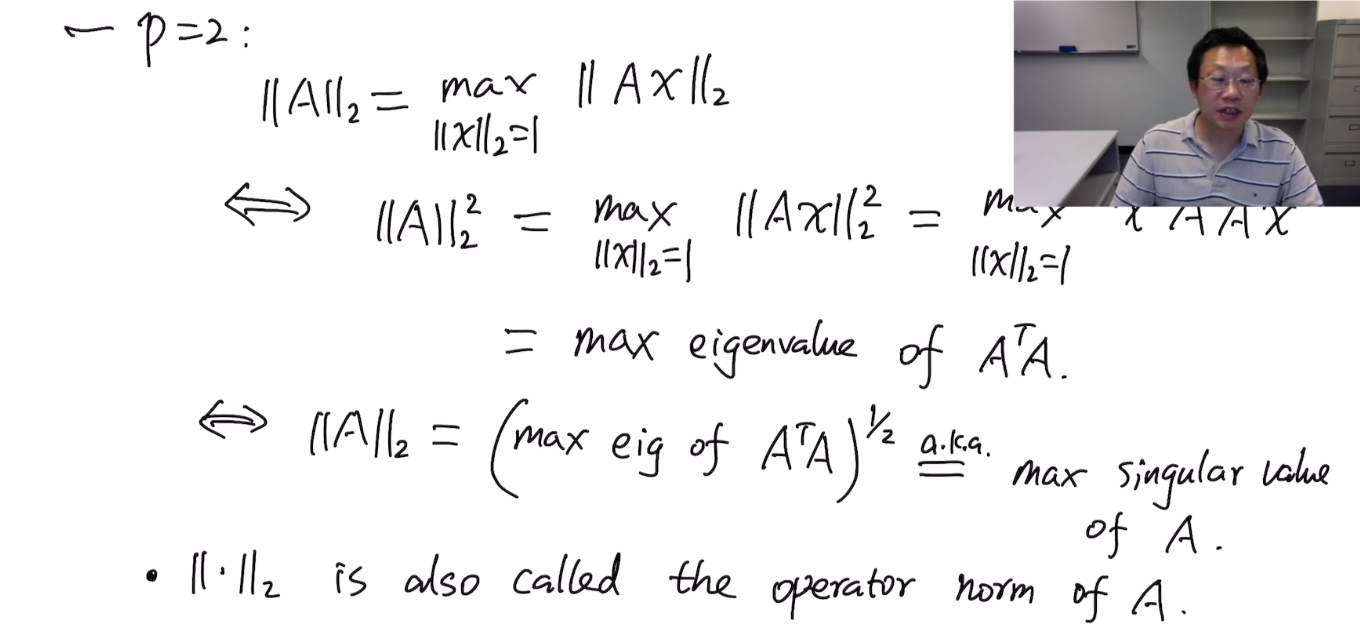 — p=2:
||A||₂ = max ||Ax||₂
||x||₂=1
⟺ ||A||₂² = max ||Ax||₂² = max x A A x
||x||₂=1 ||x||₂=1
= max eigenvalue of AᵀA.
⟺ ||A||₂ = (max eig of AᵀA)^{1/2} a.k.a. = max singular value
of A.
• ||·||₂ is also called the operator norm of A.